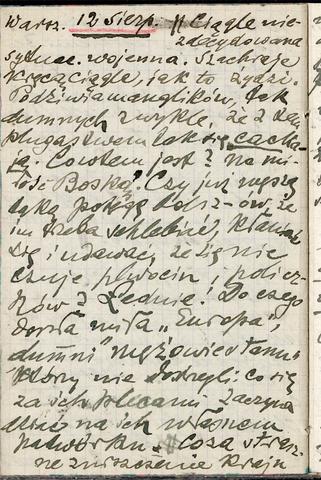 Warsz. 12 sierp. // Ciągle nie-
zdecydowana
sytuac. wojenna. Szachraje
kręcą ciągle, jak to żydzi.
Podziwiam anglików, tak
dumnych zwykle, że z
plugastwem tak się cacka-
ją. Co to jest? na mi-
łość Boską! Czy już
tylko potęgę
im trzeba schlebiać, kłaniać
się i udawać, że się nie
czuje plwocin, policz-
ków i Do czego
doszła miła „Europa",
dumni mężowie stanu
którzy nie dostrzegli: co się
za ich plecami zaczyna
dziać na ich własnem
podwórku. // Co za strasz-
ne zniszczenie kraju